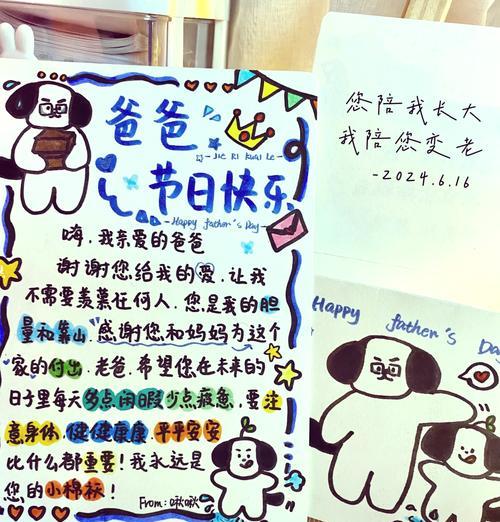 爸爸
JIE RI KUAI LE
节日快乐
Happy father's Day
嗨,我亲爱的爸爸
谢谢您给我的爱,让我
不需要羡慕任何人,您是我的胆
量和靠山,感谢您和妈妈为这个
家的付出,老爸,希望您在未来的
日子里每天多点闲暇少点疲惫,要注
意身体,健健康康,平平安安
比什么都重要!我永远是
您的小棉袄!
From:啾啾
您陪我长大
我陪您变老
-2024.6.16
Happy father's Day